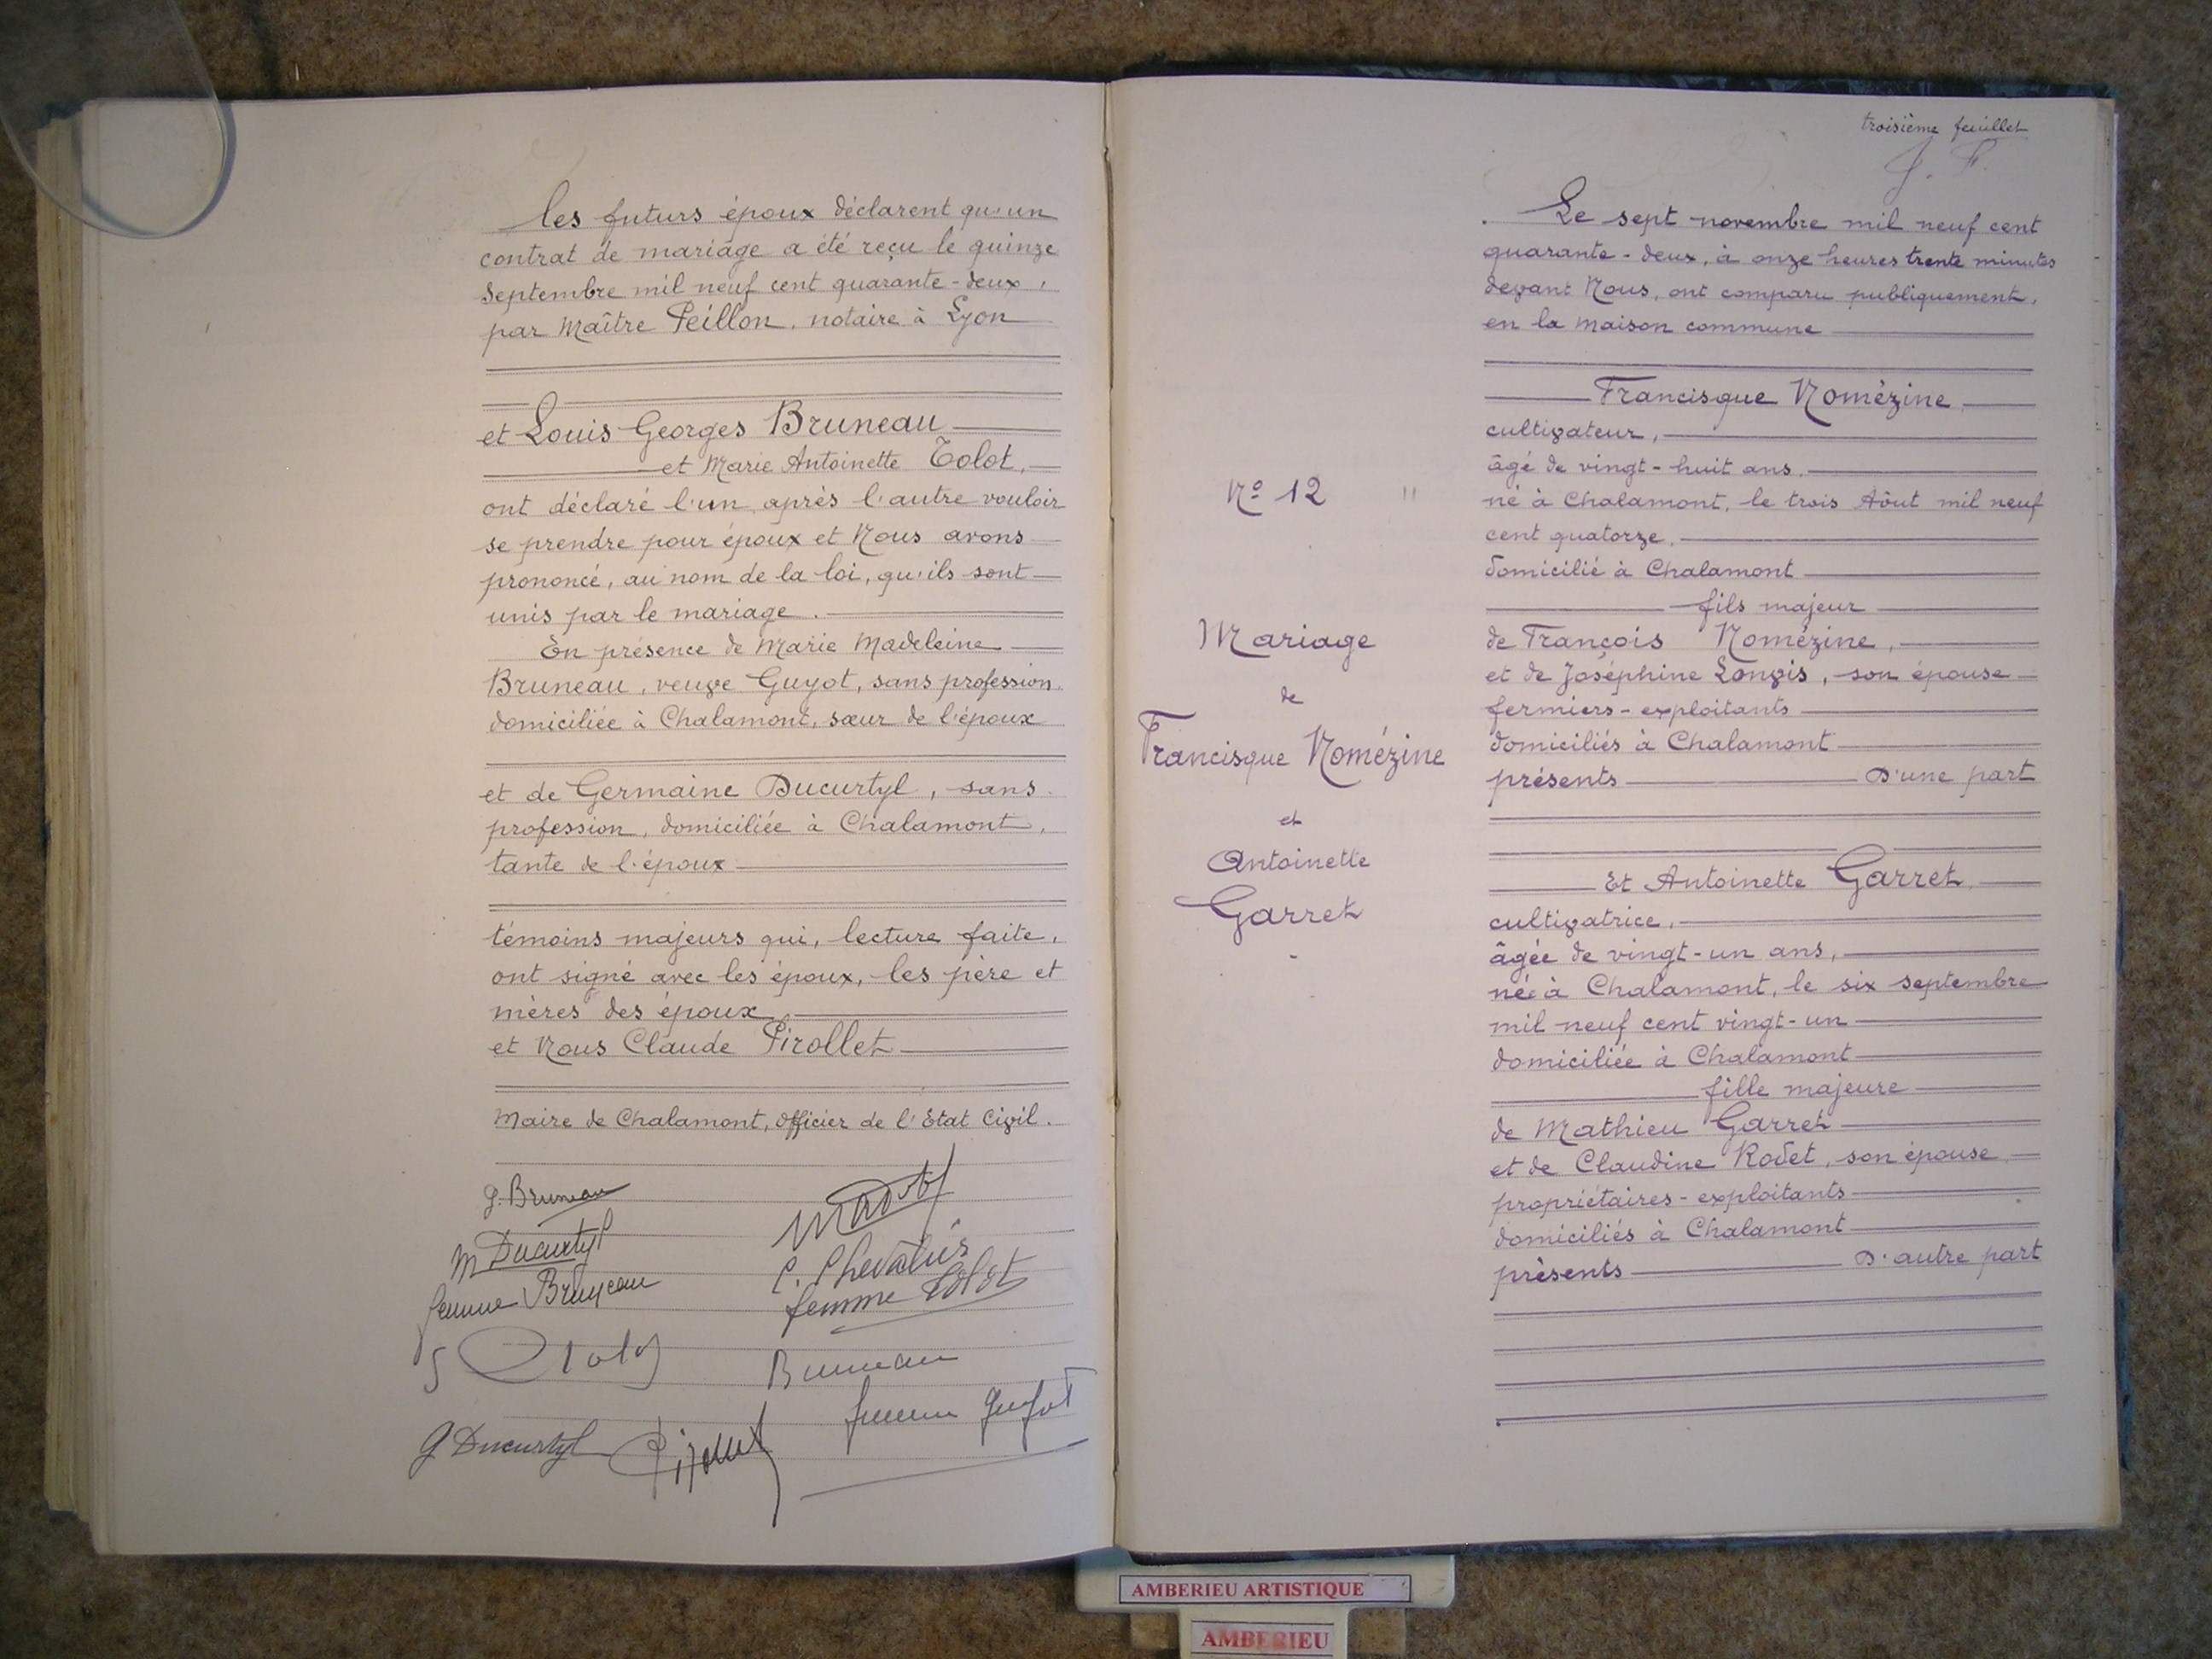 les futurs époux déclarent qu'un
contrat de mariage a été reçu le quinze
Septembre mil neuf cent quarante-deux,
par Maître Peillon, notaire à Lyon
et Louis Georges Bruneau
et Marie Antoinette Tolot,
ont déclaré l'un après l'autre vouloir
se prendre pour époux et Nous avons
prononcé, au nom de la loi, qu'ils sont
unis par le mariage.
En présence de Marie Madeleine
Bruneau, veuve Guyot, sans profession
domiciliée à Chalamont, sœur de l'époux
et de Germaine Ducurtyl, sans
profession, domiciliée à Chalamont,
tante de l'époux
témoins majeurs qui, lecture faite,
ont signé avec les époux, les père et
mères des époux
et Nous Claude Pirollet
Maire de Chalamont, Officier de l'Etat Civil.
g. Bruneau
M Ducurtyl
femme Bruneau
C. Chevalier
femme Tolot
Bruneau
G Ducurtyl
troisième feuillet
J. F.
Le sept novembre mil neuf cent
quarante-deux, à onze heures trente minutes
devant Nous, ont comparu publiquement,
en la maison commune
Francisque Nomézine
cultivateur,
âgé de vingt-huit ans,
né à Chalamont, le trois Aôut mil neuf
cent quatorze,
domicilié à Chalamont
fils majeur
de François Nomézine,
et de Joséphine Longis, son épouse
fermiers-exploitants
domiciliés à Chalamont
présents D'une part
Et Antoinette Garret,
cultivatrice,
âgée de vingt-un ans,
née à Chalamont, le six septembre
mil neuf cent vingt-un
domiciliée à Chalamont
fille majeure
de Mathieu Garret
et de Claudine Rodet, son épouse
propriétaires-exploitants
domiciliés à Chalamont
présents D'autre part
Nº 12 "
Mariage
de
Francisque Nomézine
et
Antoinette
Garret
AMBERIEU ARTISTIQUE
AMBERIEU